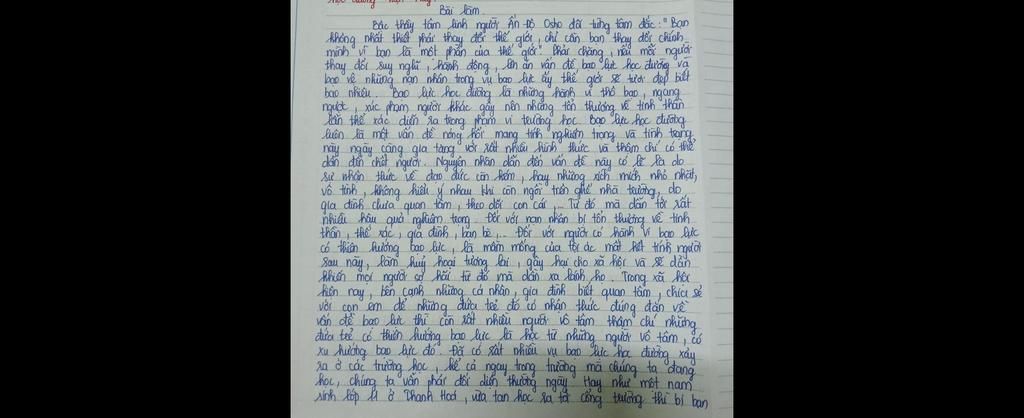 học đường hiện nay.
Bài làm.
Bậc thầy tâm linh người Ấn Độ Osho đã từng tâm đắc: "Bạn
không nhất thiết phải thay đổi thế giới, chỉ cần bạn thay đổi chính
mình vì bạn là một phần của thế giới". Phải chăng, nếu mỗi người
thay đổi suy nghĩ, hành động, lên án vấn đề bạo lực học đường và
bảo vệ những nạn nhân trong vụ bạo lực ấy thế giới sẽ tươi đẹp biết
bao nhiêu. Bạo lực học đường là những hành vi thô bạo, ngang
ngược, xúc phạm người khác gây nên những tổn thương về tinh thần
lẫn thể xác diễn ra trong phạm vi trường học. Bạo lực học đường
luôn là một vấn đề nóng hổi mang tính nghiêm trọng và tình trạng
này ngày càng gia tăng với rất nhiều hình thức và thậm chí có thể
dẫn đến chết người. Nguyên nhân dẫn đến vấn đề này có lẽ là do
sự nhận thức về đạo đức còn kém, hay những xích mích nhỏ nhặt,
vô tình, không hiểu ý nhau khi còn ngồi trên ghế nhà trường, do
gia đình chưa quan tâm, theo dõi con cái,... Từ đó mà dẫn tới rất
nhiều hậu quả nghiêm trọng. Đối với nạn nhân bị tổn thương về tinh
thần, thể xác, gia đình, bạn bè,... Đối với người có hành vi bạo lực
có thiên hướng bạo lực, là mầm mống của tội ác mất hết tính người
sau này, làm huỷ hoại tương lai, gây hại cho xã hội và sẽ dần
khiến mọi người sợ hãi từ đó mà dần xa lánh họ. Trong xã hội
hiện nay, bên cạnh những cá nhân, gia đình biết quan tâm, chia sẻ
với con em để những đứa trẻ đó có nhận thức đúng đắn về
vấn đề bạo lực thì còn rất nhiều người vô tâm thậm chí những
đứa trẻ có thiên hướng bạo lực là học từ những người vô tâm, có
xu hướng bạo lực đó. Đã có rất nhiều vụ bạo lực học đường xảy
ra ở các trường học, kể cả ngay trong trường mà chúng ta đang
học, chúng ta vẫn phải đối diện thường ngày. Hay như một nam
sinh lớp 11 ở Thanh Hoá, vừa tan học ra tới cổng trường thì bị bạn